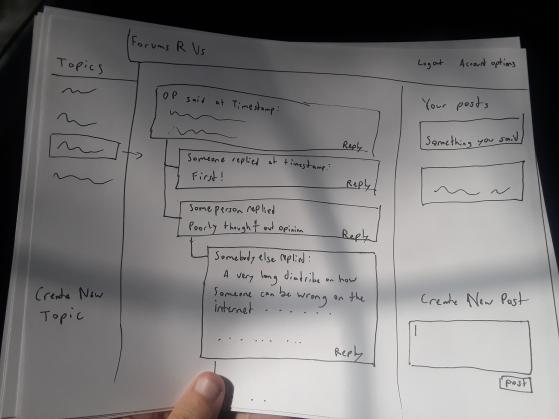 Forums R Us
Logout Account options
Topics
OP said at Timestamp:
Reply
Someone replied at timestamp:
First!
Reply
Some person replied
Poorly thought out opinion
Reply
Somebody else replied:
A very long diatribe on how
Someone can be wrong on the
internet . . . . . .
. . . . . .
Reply
. .
Create New
Topic
Your posts
Something you said
Create New Post
post